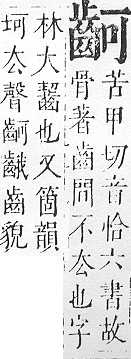 䶗
苦甲切音恰六書故
骨著齒間不厺也字
林大齧也又箇韻
坷厺聲䶗齒貌